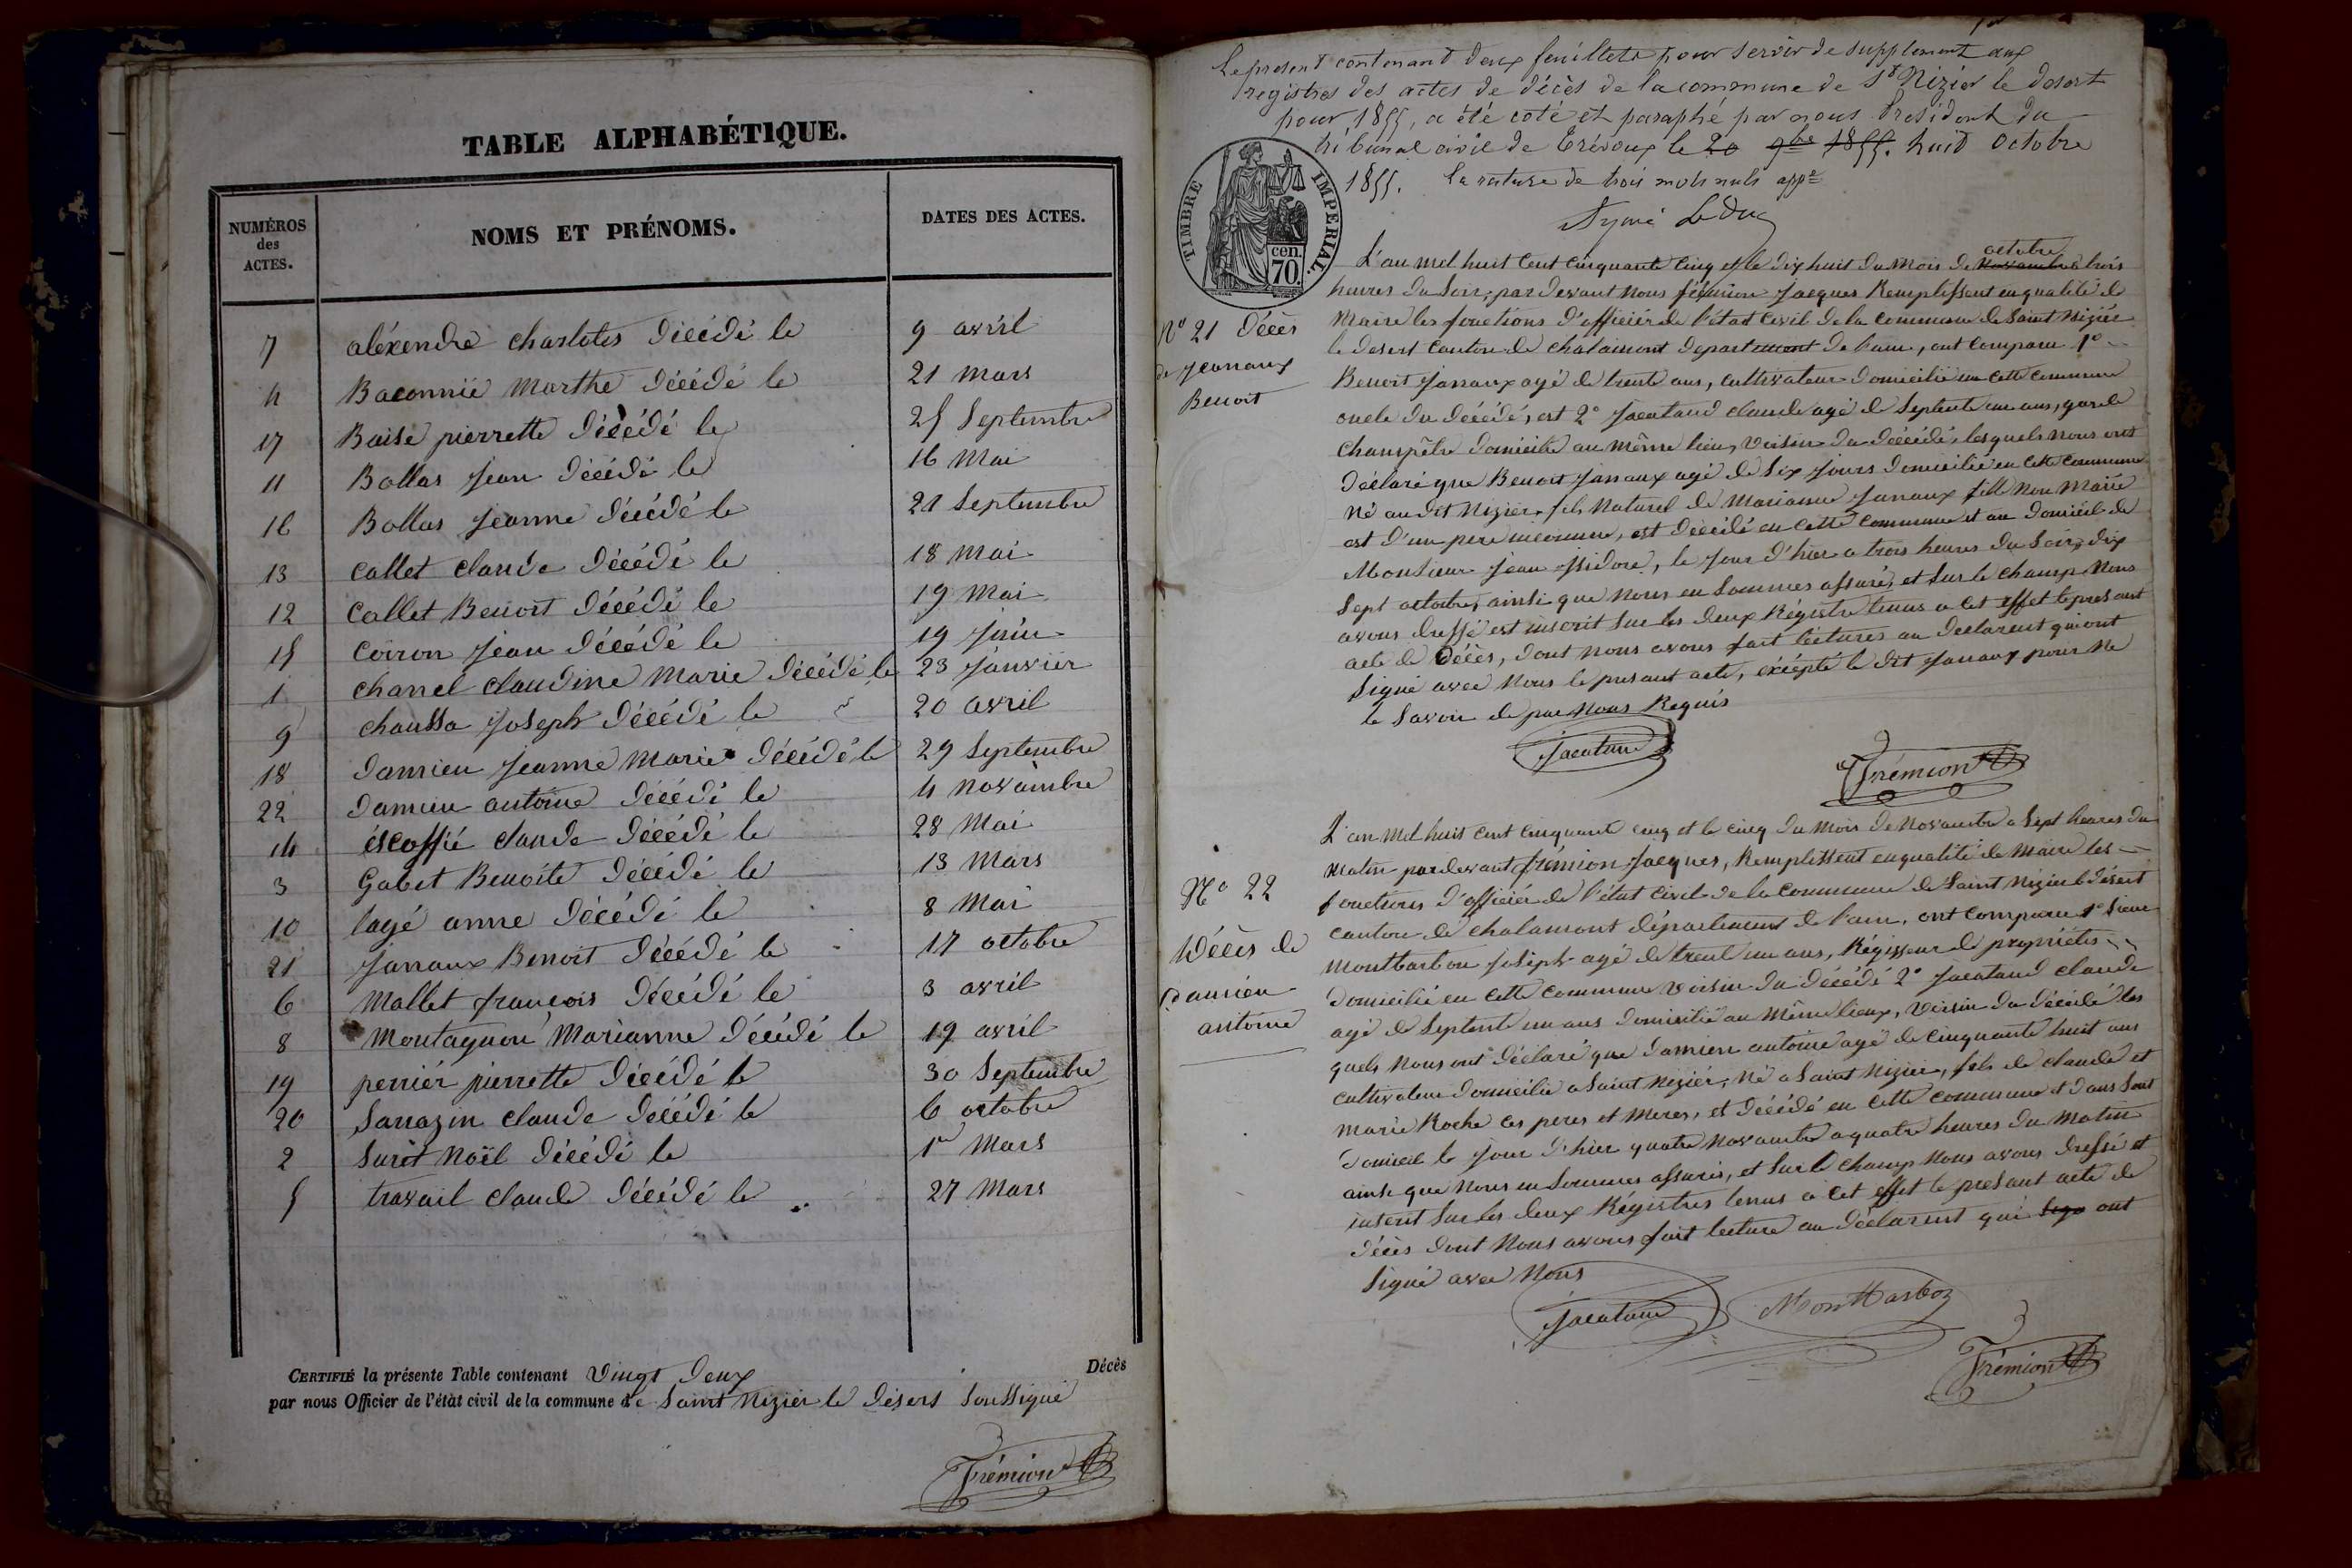 TABLE ALPHABÉTIQUE.
NUMÉROS des ACTES. NOMS ET PRÉNOMS. DATES DES ACTES.
7 aléxendre charlotes décédé le 9 avril
4 Baconnié Marthe décédé le 21 mars
17 Baise pierrette décédé le 25 Septembre
11 Bollas Jean décédé le 16 Mai
16 Bollas Jeanne décédé le 21 Septembre
13 Callet claude décédé le 18 mai
12 Callet Benoit décédé le 19 Mai
15 Coiron Jean décédé le 19 Juin
1 Chanel claudine Marie décédé le 23 Janvier
9 Chaussa Joseph décédé le 20 avril
18 damien Jeanne Marie décédé le 29 Septembre
22 damien antoine décédé le 4 novambre
14 éscoffié claude décédé le 28 Mai
3 Gabet Benoite décédé le 13 Mars
10 lagé anne décédé le 8 Mai
21 Janaux Benoit décédé le 17 octobre
6 Mallet françois décédé le 3 avril
8 Montagnon Marianne décédé le 19 avril
19 perriér pierrette décédé le 30 Septembre
20 Sarrazin claude décédé le 6 octobre
2 Surèt Noël décédé le 1er Mars
5 travail claude décédé le 27 Mars
CERTIFIÉ la présente Table contenant Vingt deux Décès
par nous Officier de l'état civil de la commune de Saint Nizier le désers Soussigné
Frémion
Le présent contenant deux feuillets pour servir de supplement aux
registres des actes de décès de la commune de St Nizier le desert
pour 1855, a été coté et paraphé par nous Président du
tribunal civil de Trévoux le 20 9bre 1855. huit Octobre
1855. la rature de trois mots nuls appé
TIMBRE IMPERIAL.
cen. 70.
Le Duc
octobre
L'an mel huit Cent cinquante cinq et le dix huit du Mois de Novambre trois
heures du Soir, par devant Nous frémion Jacques Remplissent en qualité de
Maire les fonctions d'officiér de l'état Civil de la Commune de Saint Nizier
le desert Canton de Chalamont departement de l'ain, ont Comparu 1°
Benoit Janaux agé de trente ans, Cultivateur domicilié en Cette Commune
oncle du décédé, est 2° Jacataud claude agé de Septente un ans, garde
Champêtre domicilié au même lieu, Voisin du décédé, lesquels nous ont
déclaré que Benoit Janaux agé de Six Jours domicilié en Cette Commune
Né au dit Nizier, fils Naturel de Marianne Janaux fille Non Marié
est d'un pere inconnu, est décédé en Cette Commune et au domicil de
Monsieur Jean Isidore, le Jour d'hier a trois heures du Soir, dix
Sept octobre, ainsi que Nous en Sommes assuré, et Sur le champ Nous
avons dressé est inscrit Sur les deux Régistre tenus a Cet effet le presant
acte de Décès, dont Nous avons fait lectures au declarent qui ont
Signé avec Nous le presant acte, excépté le dit Janaux pour Ne
le Savoir de par Nous Requis
N° 21 Décès
de Jeanaux
Benoit
Jacataud
Frémion
L'an mel huit cent cinquante cinq et le cinq du Mois de Novambre a Sept heures du
Matin pardevant frémion Jacques, Remplissent en qualité de Maire les
fonctions d'officiér de l'état Civil de la Commune de Saint Nizier le désert
canton de Chalamont département de l'ain, ont Comparu 1° Sieur
Montbarbon Joseph agé de trente un ans, Régisseur de propriétés
domicilié en Cette Commune Voisin du décédé 2° Jacataud claude
agé de Septente un ans domicilié au Même lieux, Voisin du décédé les
quels Nous ont déclaré que damien antoine agé de cinquante huit ans
cultivateur domicilié a Saint Nizier, Né a Saint Nizier, fils de claude et
marie Roche Ces peres et Meres, et décédé en Cette Commune et dans Sont
domicil le Jour d'hier quatre Novambre a quatre heures du Matin
ainsi que Nous en Sommes assurés, et Sur le champ Nous avons dressé et
inscrit Sur les deux Régistres tenus a Cet effet le presant acte de
décès dont Nous avons fait lecture au déclarent qui ont
Signé avec Nous
N° 22
Décès de
Damien
antoine
Jacataud
Montbarbon
Frémion